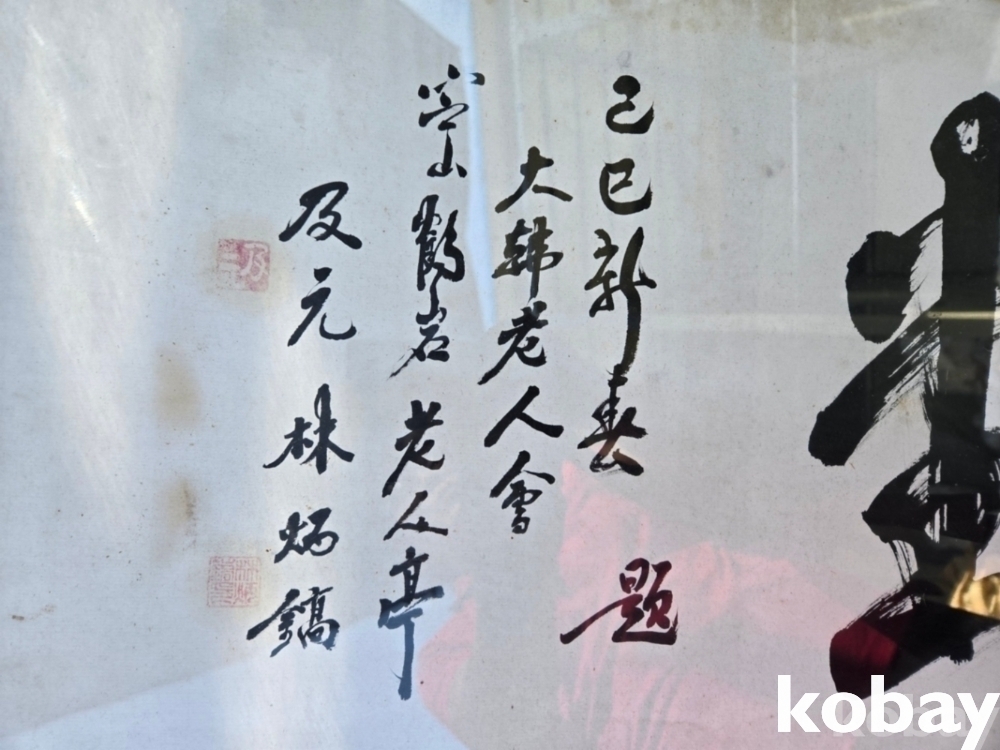 己巳新春 題
大韓老人會
山鶴岩老人亭
及元 林炳鎬
kobay